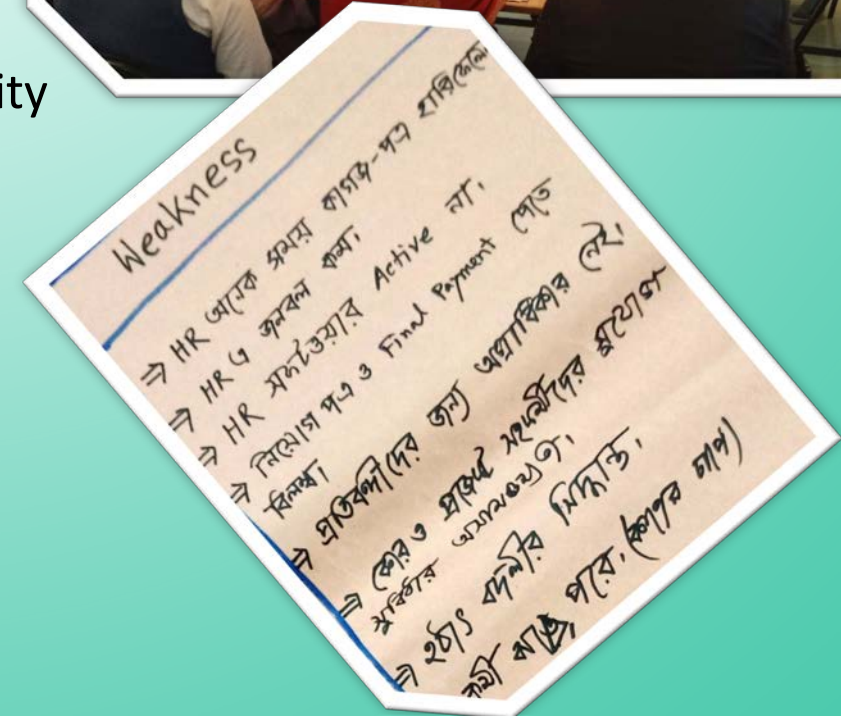 ity
Weakness
⇒ HR অনেক সময় কাগজ-পত্র হারিয়ে ফেলে
⇒ HR এ জনবল কম।
⇒ HR সফটওয়ার Active না।
⇒ নিয়োগ পত্র ও Final Payment পেতে
বিলম্ব।
⇒ প্রতিবন্ধীদের জন্য অগ্রাধিকার নেই।
⇒ কোর ও প্রজেক্ট সহকর্মীদের সুযোগ
সুবিধার অসামঞ্জস্যতা।
⇒ হঠাৎ বদলীর সিদ্ধান্ত।
পরে। (কাজের চাপ)